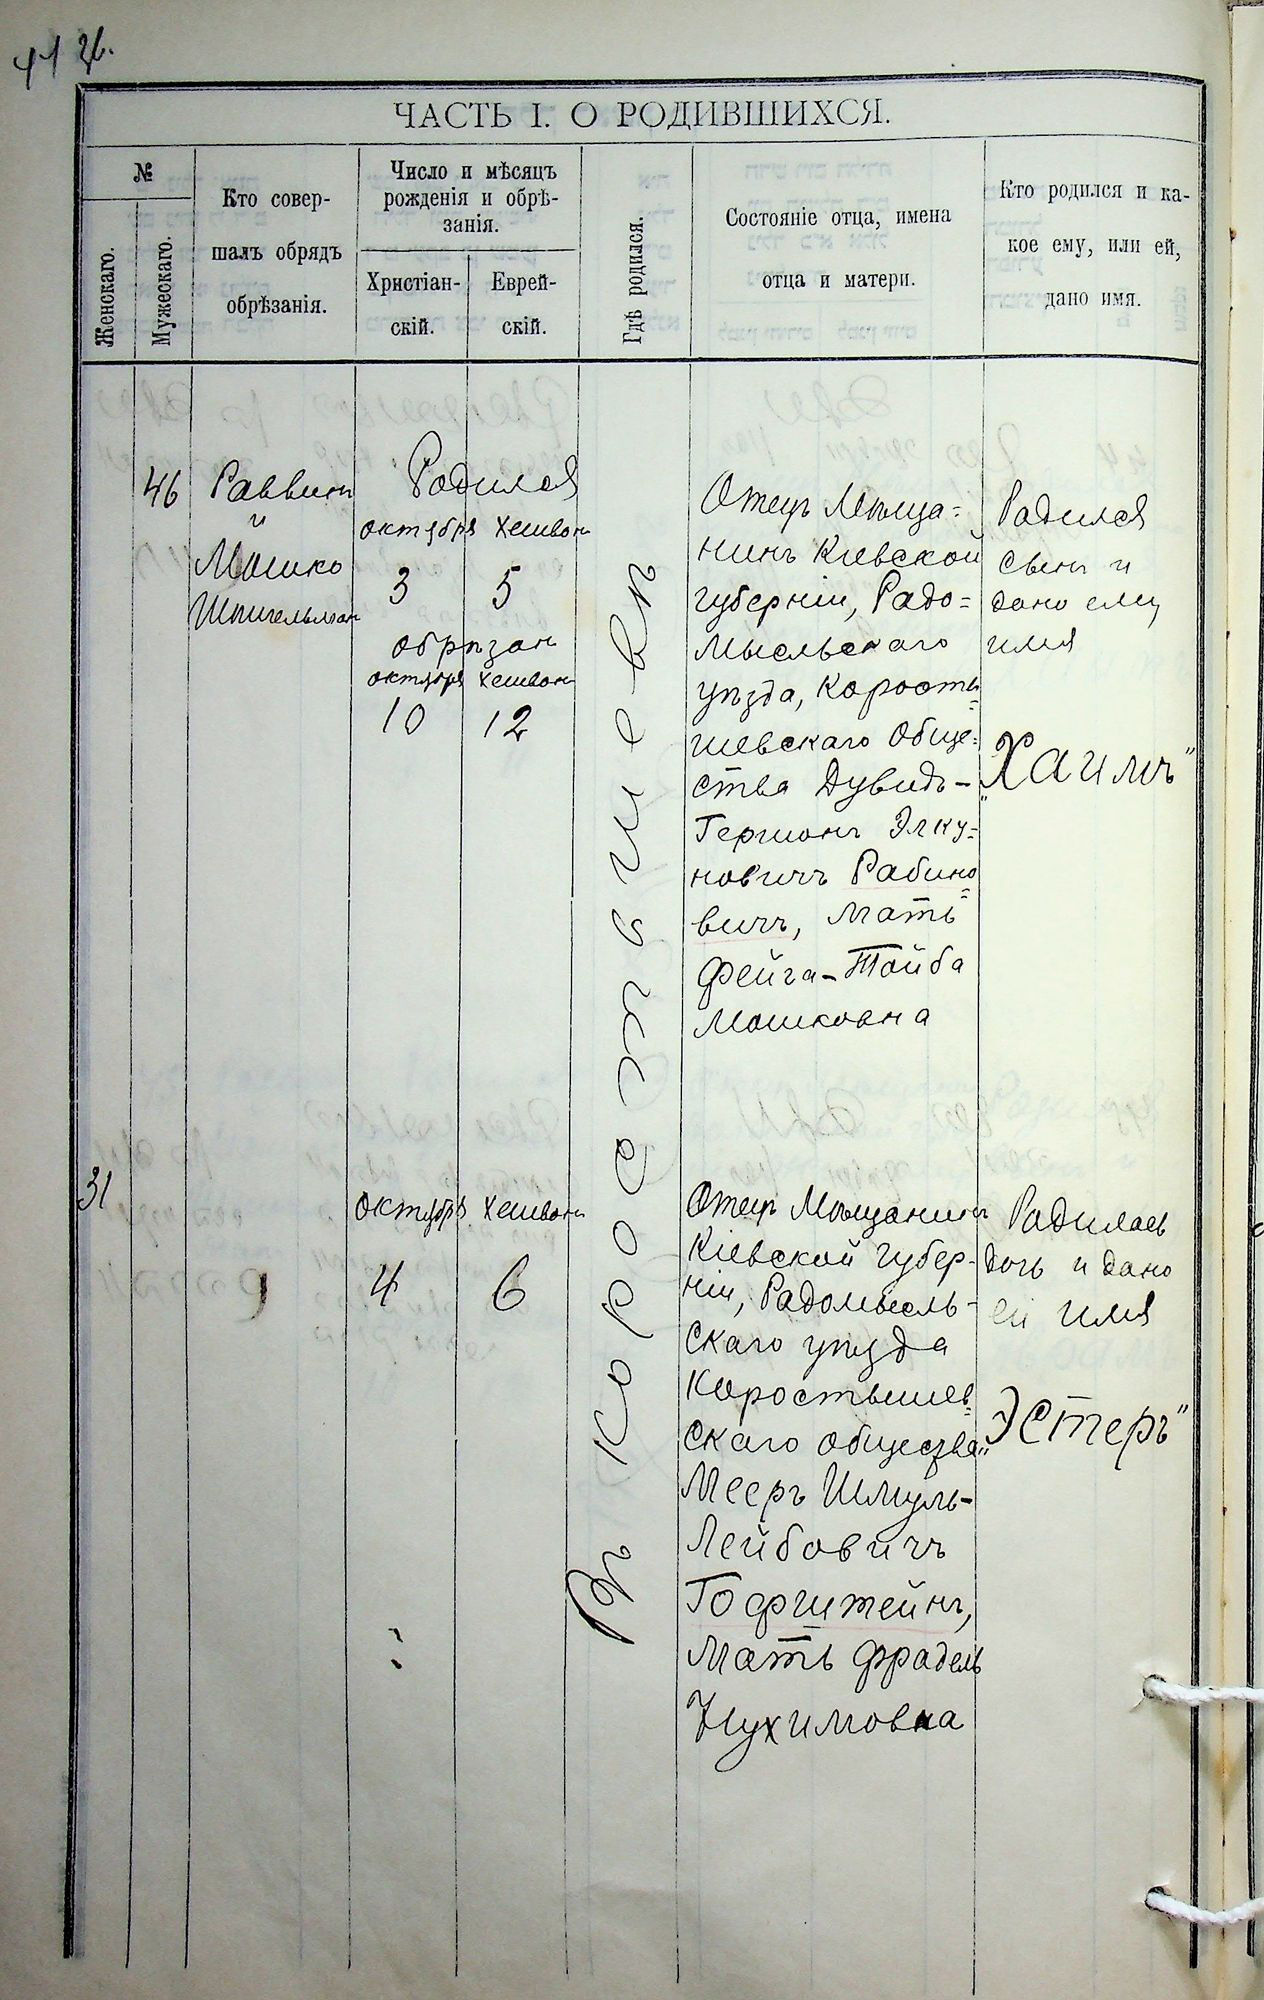 ЧАСТЬ I. О РОДИВШИХСЯ.
№
Женскаго.
Мужескаго.
Кто совер-
шалъ обрядъ
обрѣзанія.
Число и мѣсяцъ
рожденія и обрѣ-
занія.
Христіан-
скій.
Еврей-
скій.
Гдѣ родился.
Состояніе отца, имена
отца и матери.
Кто родился и ка-
кое ему, или ей,
дано имя.
46
Раввинъ
и
Мошко
Шпигельман
Родился
октября Хешвон
3 5
обрѣзан
октября Хешвон
10 12
Въ Коростишевѣ
Отецъ Мѣща=
нинъ Кіевской
губерніи, Радо=
мысльскаго
уѣзда, Корости
=
шевскаго Обще=
ства Дувидъ-
Гершонъ Элку=
новичъ Рабино
=
вичъ, Мать
Фейга-Тойба
Мошковна
Родился
сынъ и
дано ему
имя
"Хаимъ"
31
октября Хешвон
4 6
Отецъ Мѣщанинъ
Кіевской губер-
ніи, Радомысль-
скаго уѣзда
Коростышев
=
скаго общества
Мееръ Шмуль-
Лейбовичъ
Гофштейнъ,
Мать Фрадель
Нухимовна
Родилась
дочь и дано
ей имя
"Эстеръ"